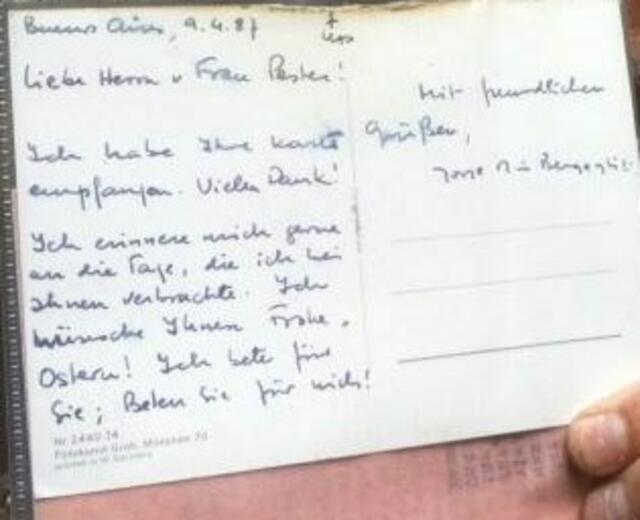 Buenos Aires, 9.4.87
Liebe Herrn u Frau
Ich habe Ihre Karte
empfangen. Vielen Dank!
Ich erinnere mich gerne
an die Tage, die ich bei
Ihnen verbrachte. Ich
wünsche Ihnen Frohe
Ostern! Ich bete für
Sie; Beten Sie für mich!
Mit freundlichen
Grüßen,
Jorge M Bergoglio
Nr. 2440/14
München 70